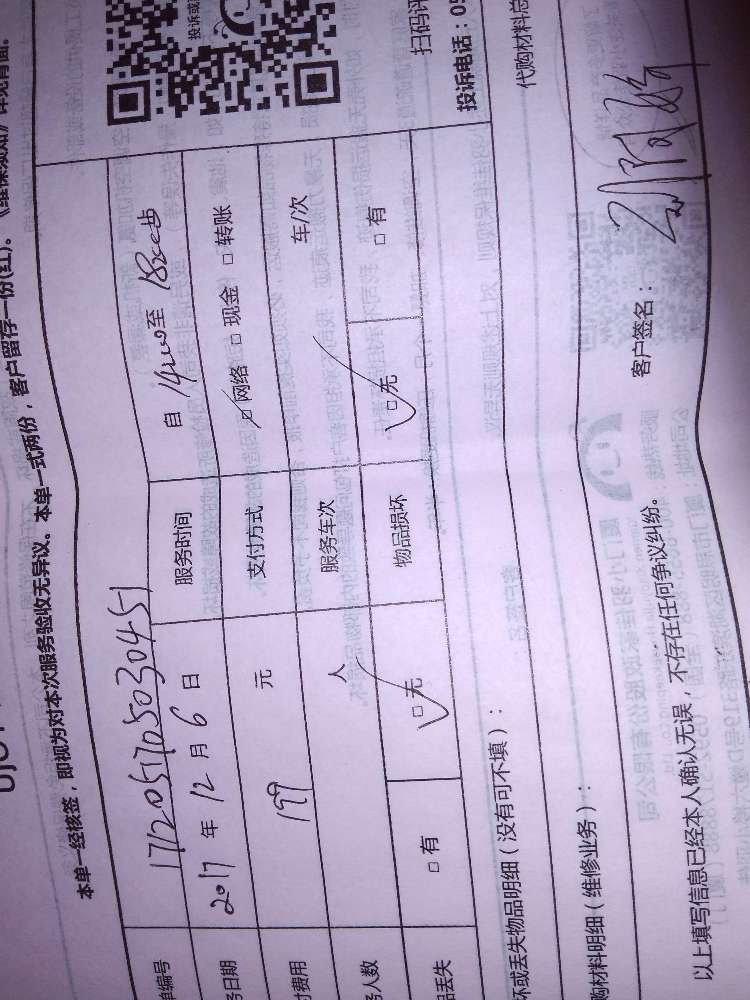 本单一经核签，即视为对本次服务验收无异议。本单一式两份，客户留存一份(红)。《维保须知》详见背面。
单编号 1712051705030451
务日期 2017 年 12 月 6 日 服务时间 自 14:00 至 18:00止
付费用 199 元 支付方式 ☑网络 □现金 □转账
务人数 人 服务车次 车/次
品丢失 □有 ☑无 物品损坏 ☑无 □有
投诉或
扫码评
投诉电话：05
坏或丢失物品明细（没有可不填）：
代购材料总
购材料明细（维修业务）：
客户签名：
以上填写信息已经本人确认无误，不存在任何争议纠纷。